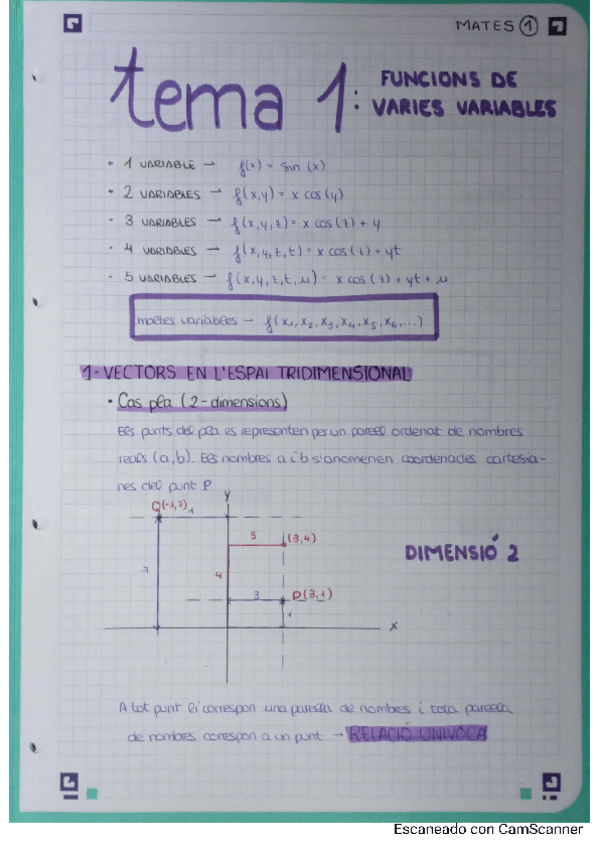 MATES 1
tema 1: FUNCIONS DE
VARIES VARIABLES
• 1 VARIABLE → f(x) = sin (x)
• 2 VARIABLES → f(x,y) = x cos(y)
• 3 VARIABLES → f(x,y,z) = x cos(z) + y
• 4 VARIABLES → f(x,y,z,t) = x cos(z) + yt
• 5 VARIABLES → f(x,y,z,t,u) = x cos(z) + yt + u
moltes variables → f(x1, x2, x3, x4, x5, x6, ...)
1-VECTORS EN L'ESPAI TRIDIMENSIONAL
• Cas pla (2-dimensions)
Els punts del pla es representen per un parell ordenat de nombres
reals (a,b). Els nombres a i b s'anomenen coordenades cartesia-
nes del punt P
y
Q(-1,7)
1
3
(3,4)
DIMENSIÓ 2
7
4
3
P(3,1)
1
x
A tot punt li correspon una parella de nombres i tota parella
de nombres correspon a un punt → RELACIÓ UNIVOCA
Escaneado con CamScanner